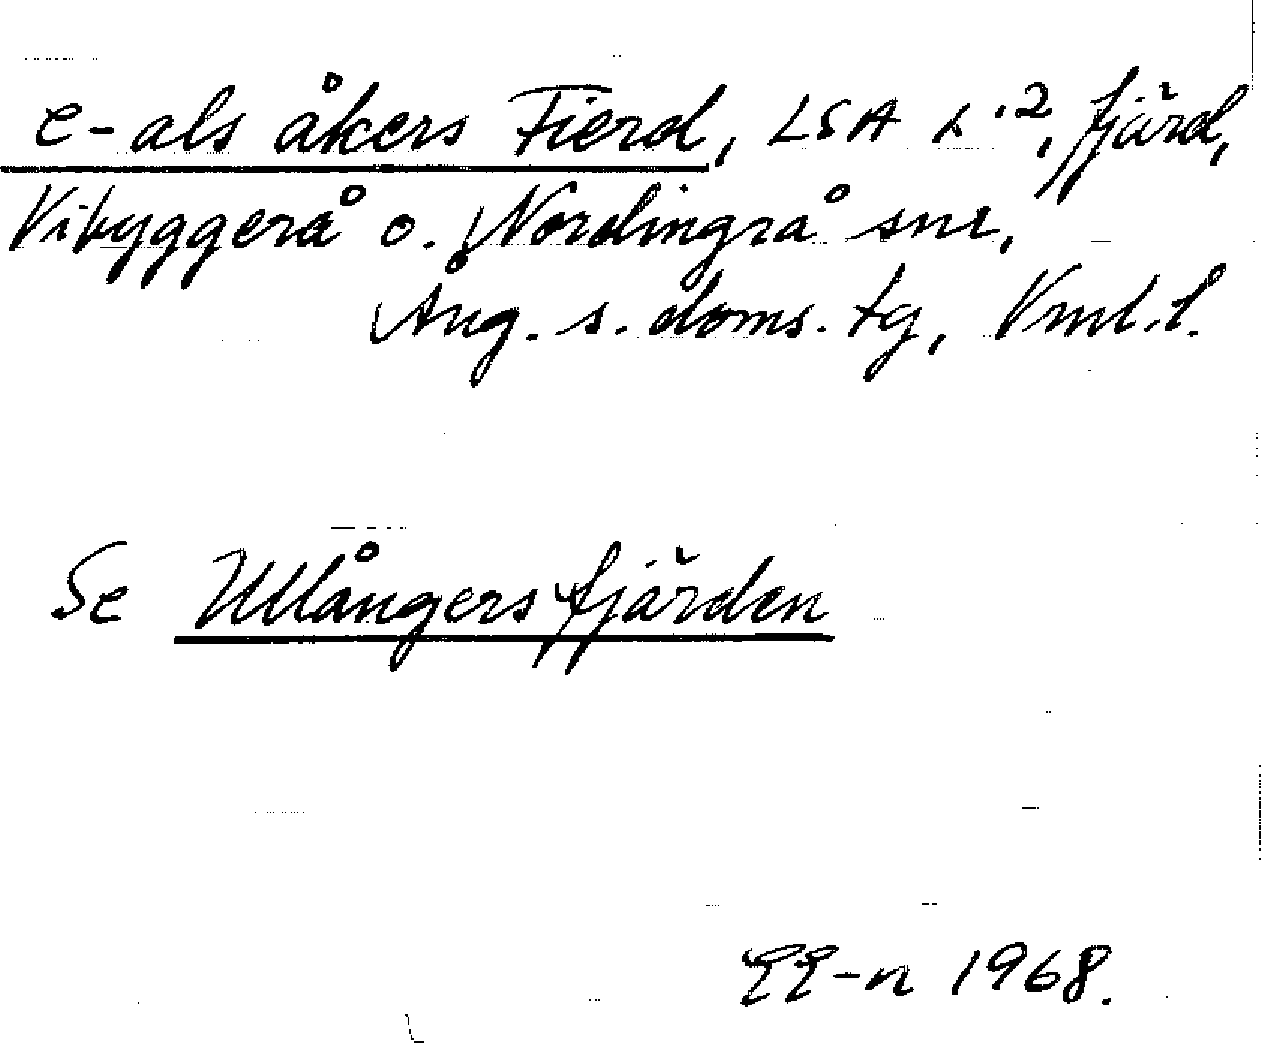 e-als åkers Fierd, LSA L.2, fjärd,
Vibyggerå o. Nordingrå snr,
Ång. s. doms. tg, Vnl. l.
Se Ullångersfjärden
EE-n 1968.